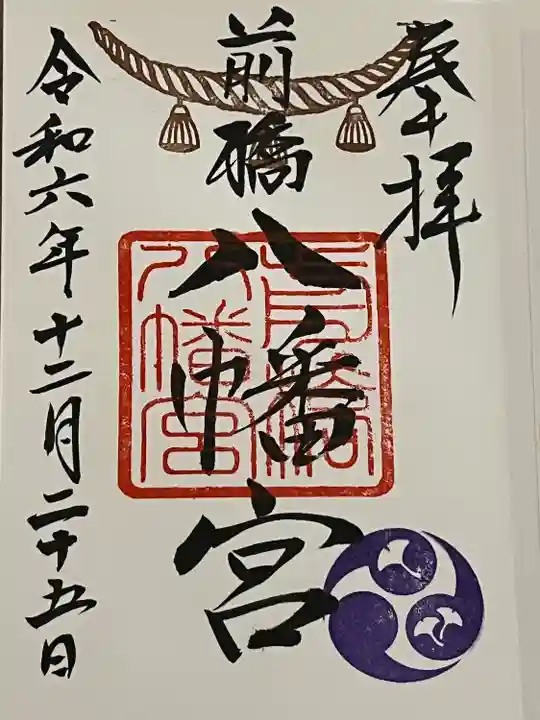 奉拝
前橋八幡宮
前橋八幡宮
令和六年十二月二十五日